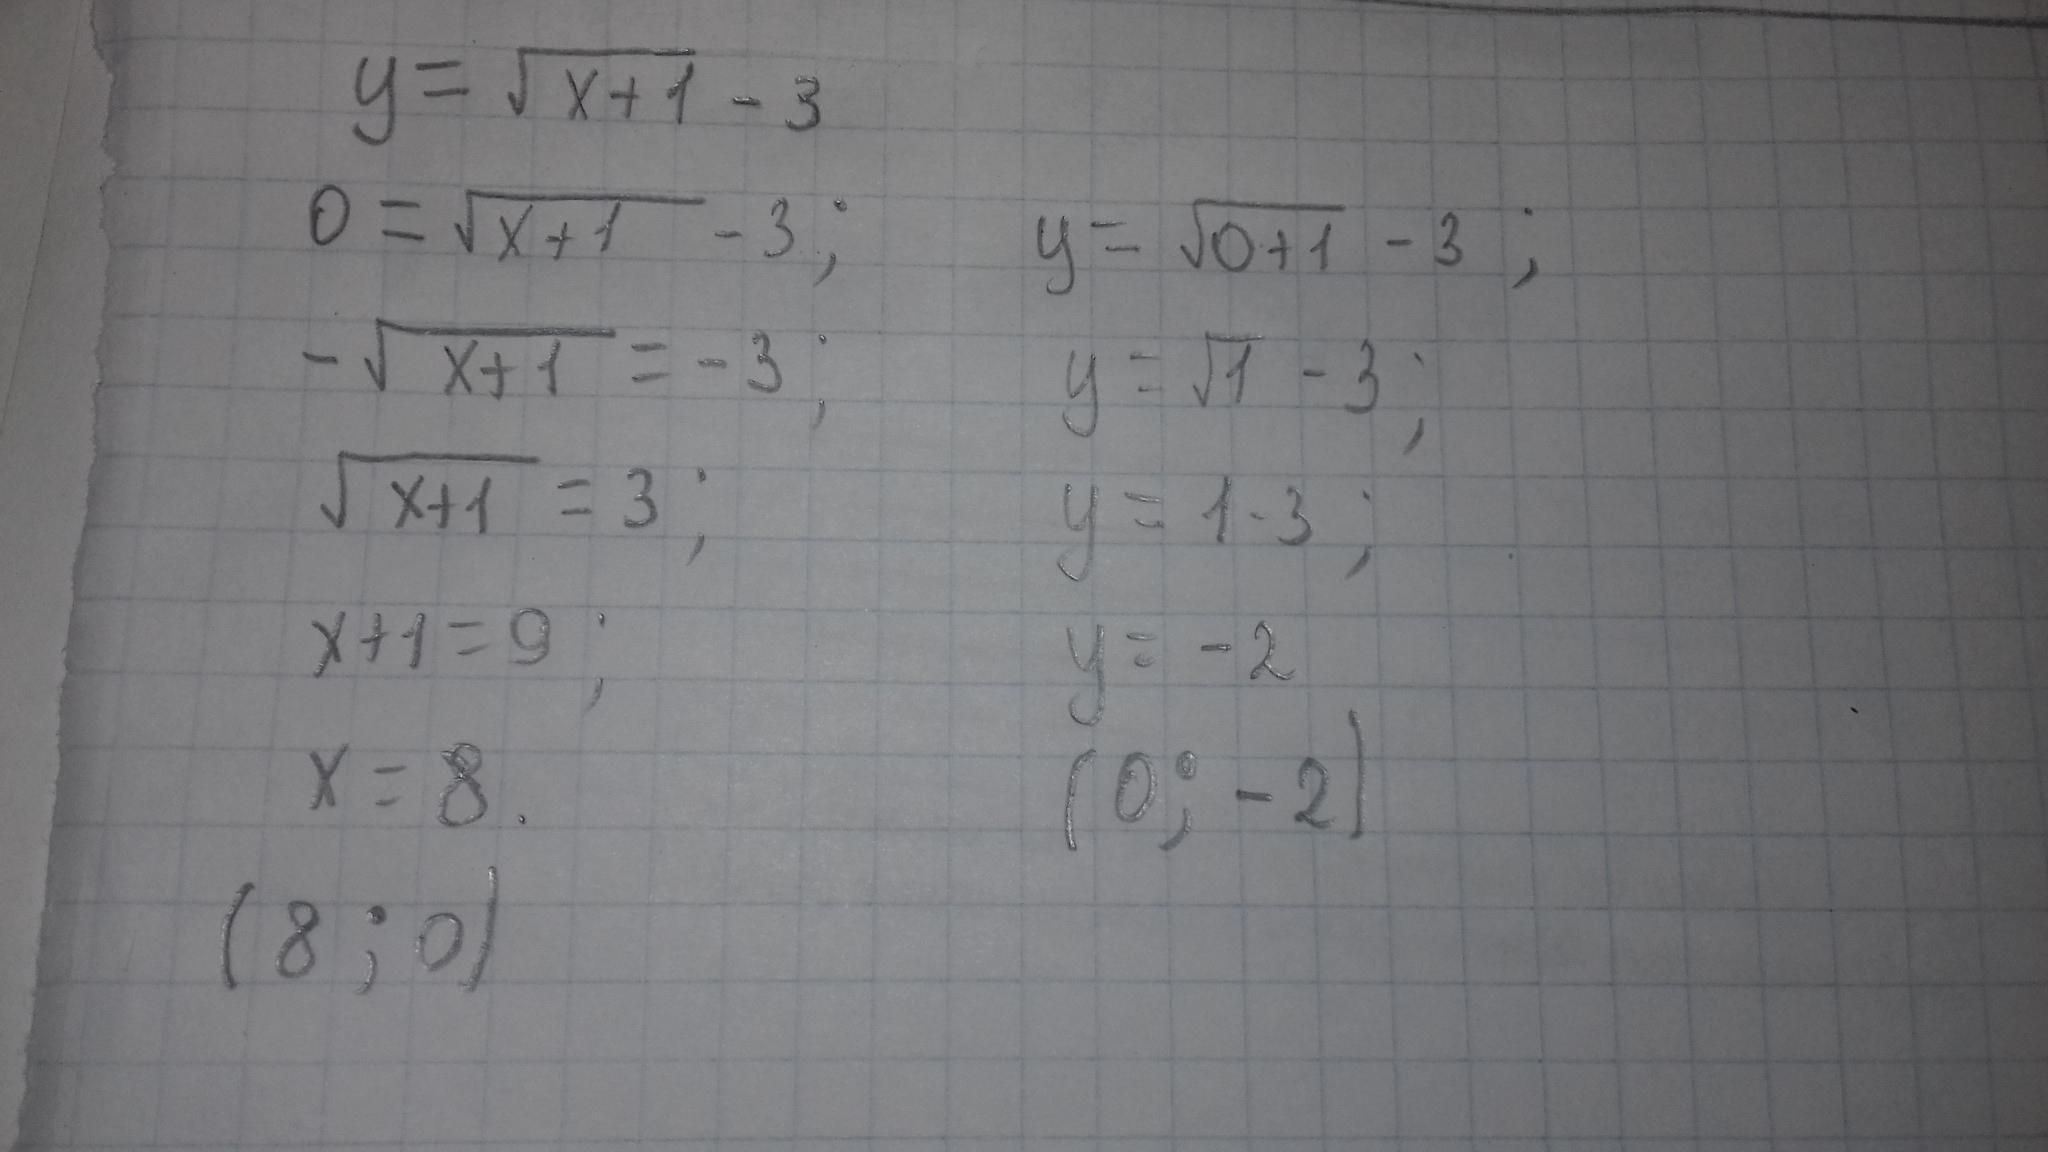 y = √(x+1) - 3
0 = √(x+1) - 3;
-√(x+1) = -3;
√(x+1) = 3;
x+1 = 9;
x = 8.
(8; 0)
y = √(0+1) - 3;
y = √1 - 3;
y = 1-3;
y = -2
(0; -2)